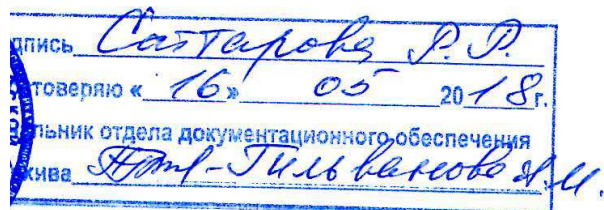 дпись Саттарова Р. Р.
товеряю « 16 » 05 20 18 г.
льник отдела документационного обеспечения
хива Гильванова М.